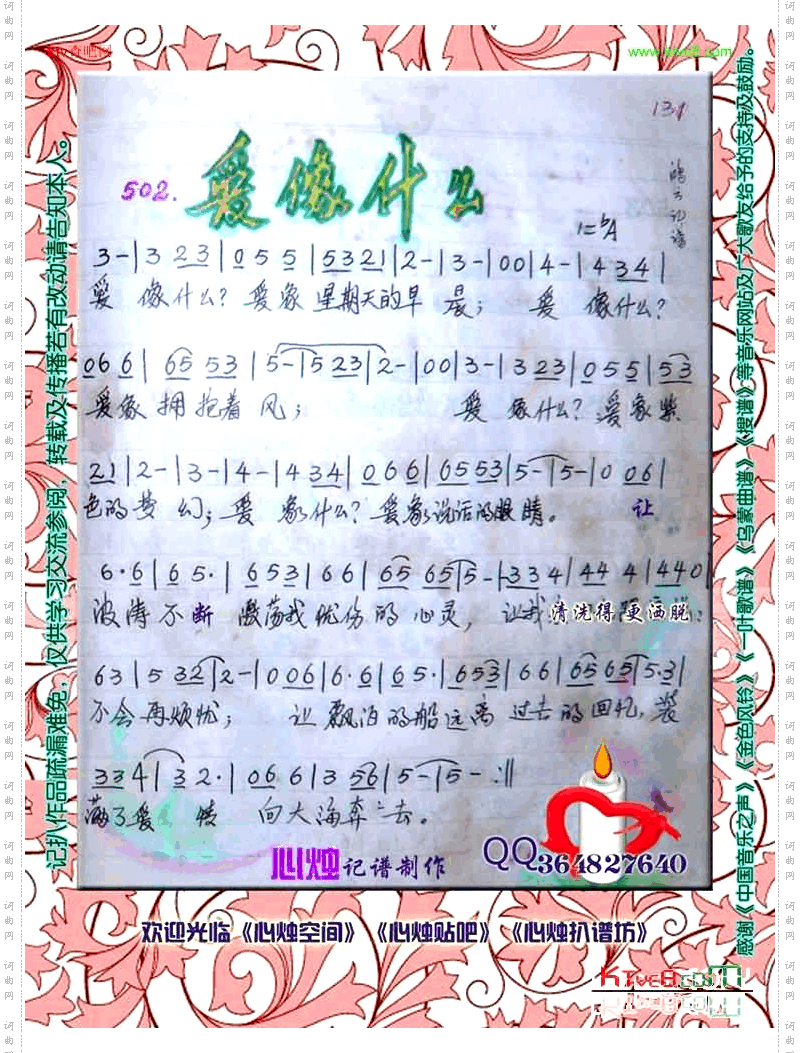 www.ktvc8.com
131
502. 爱像什么
1=♭A
3-|3 23|0 5 5|5321|2-|3-|00|4-|4 34|
爱 像什么? 爱象 星期天的早 晨; 爱 像什么?
06 6|65 53|5-|5 23|2-|00|3-|3 23|055|53
爱象 拥抱着 风; 爱 像什么? 爱象紫
21|2-|3-|4-|4 34|066|6553|5-|5-|0 06|
色的梦 幻; 爱 象什么? 爱象说话的眼睛。 让
6·6|6 5·|653|66|65 65|5-|334|44 4|440|
波涛不断 激荡我忧伤的 心灵, 让我 清洗得更洒脱;
63|5 32|2-|006|6·6|65·|653|66|65 65|5·3|
不会再烦忧; 让 飘泊的船远离 过去的回忆, 装
334|3 2·|06 6|3 56|5-|5-:||
满了爱 情 向大海奔 去。
心烛记谱制作
QQ364827640
欢迎光临《心烛空间》《心烛贴吧》《心烛扒谱坊》
记扒作品疏漏难免，仅供学习交流参阅，转载及传播若有改动请告知本人。
感谢《中国音乐之声》《金色风铃》《一叶歌谱》《乌蒙曲谱》《搜谱》等音乐网站及广大歌友给予的支持及鼓励。
词曲网